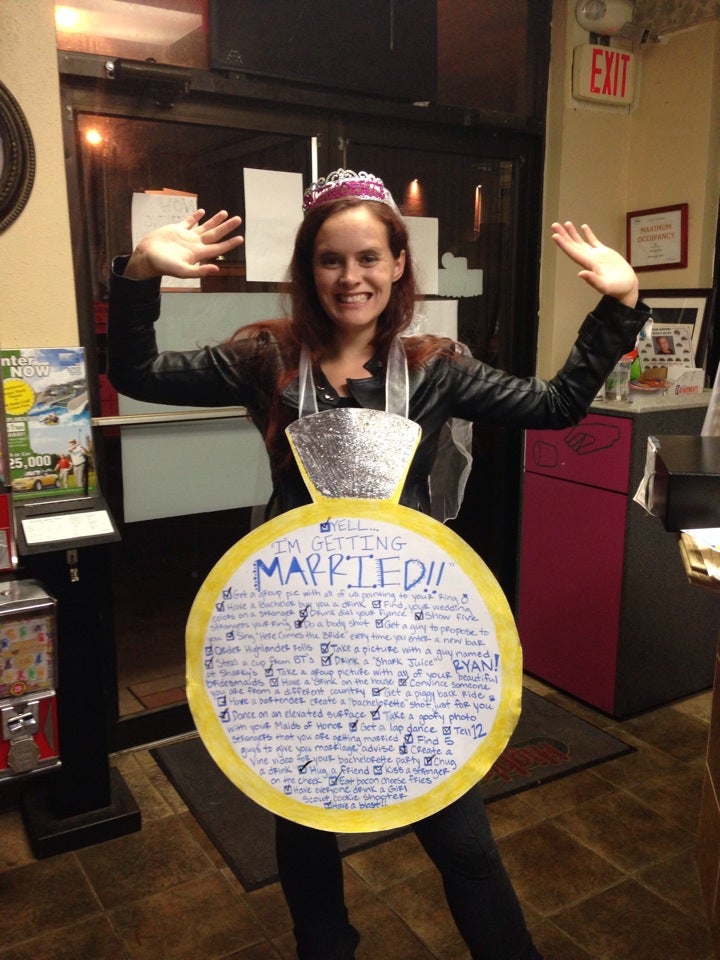 EXIT
MAXIMUM
OCCUPANCY
NOW
nter
NOW
25,000
YELL...
"I'M GETTING
MARRIED!!"
Got a group pic with all of us pointing to your Ring
Have a Bachelor buy you a drink Find your wedding
colors on a stranger Drunk dial your fiance Show five
strangers your ring Do a body shot Get a guy to propose to
you Sing "Here Comes the Bride" every time you enter a new bar
Order Highlander rolls Take a picture with a guy named
RYAN!
Steal a cup from BT's Drink a "Shark Juice"
at Sharky's Take a group picture with all of your beautiful
bridesmaids Have a drink on the house Convince someone
you are from a different country Get a piggy back ride
Have a bartender create a "bachelorette" shot just for you
Dance on an elevated surface Take a goofy photo
with your Maids of Honor Get a lap dance Tell 12
strangers that you are getting married Find 5
guys to give you marriage advise Create a
Vine video for your bachelorette party Chug
a drink Hug a friend Kiss a stranger
on the cheek Eat bacon cheese fries
Have everyone drink a Girl
Scout cookie shooter
Have a blast!!